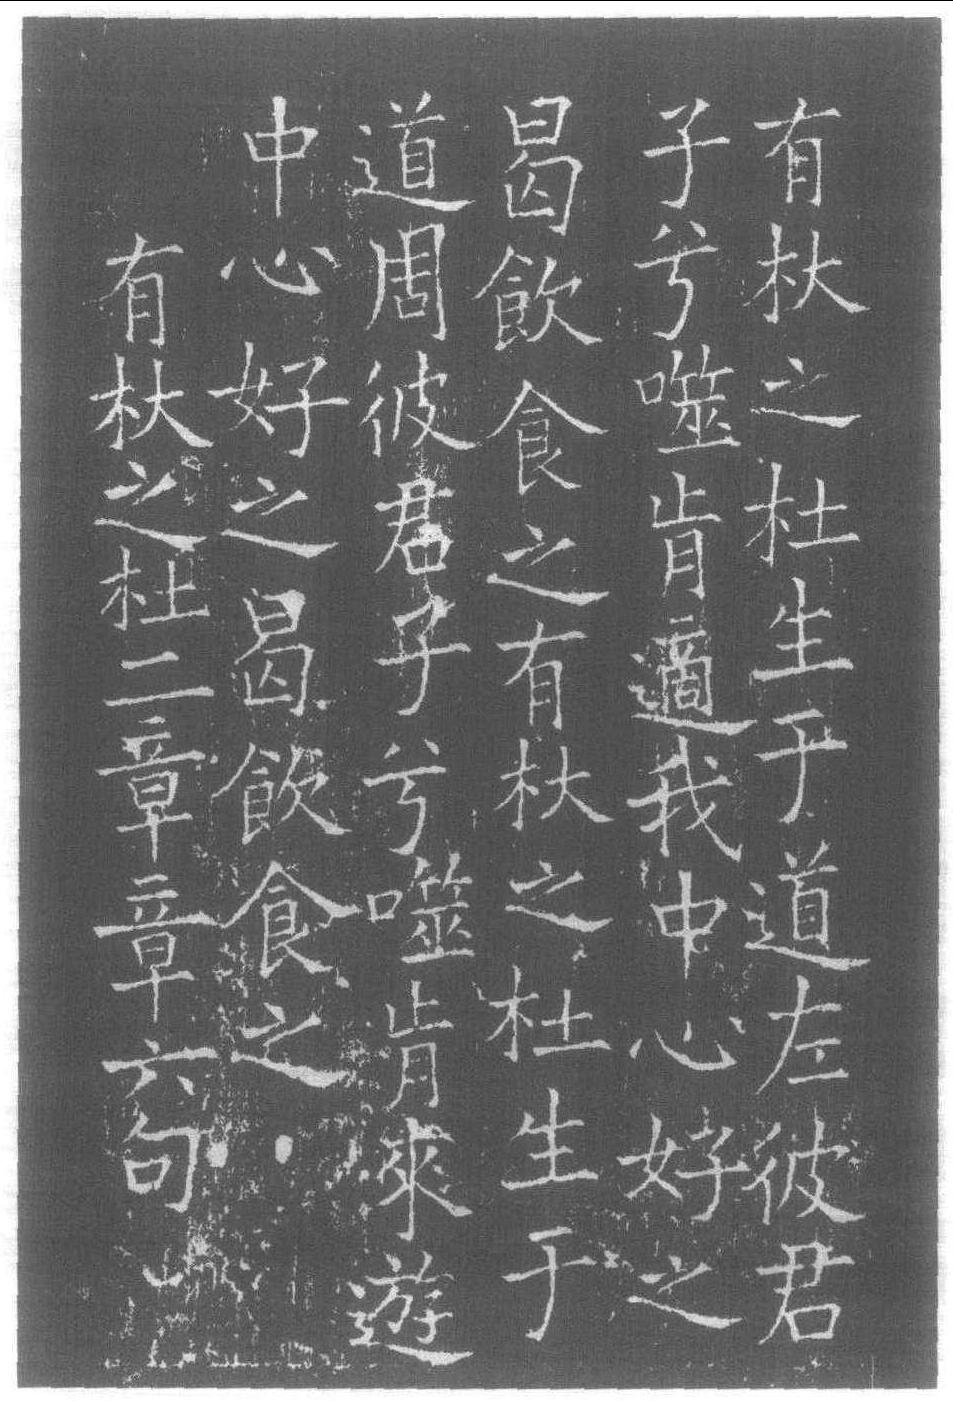 有杕之杜生于道左彼君
子兮噬肯適我中心好之
曷飲食之有杕之杜生于
道周彼君子兮噬肯來遊
中心好之曷飲食之
有杕之杜二章章六句